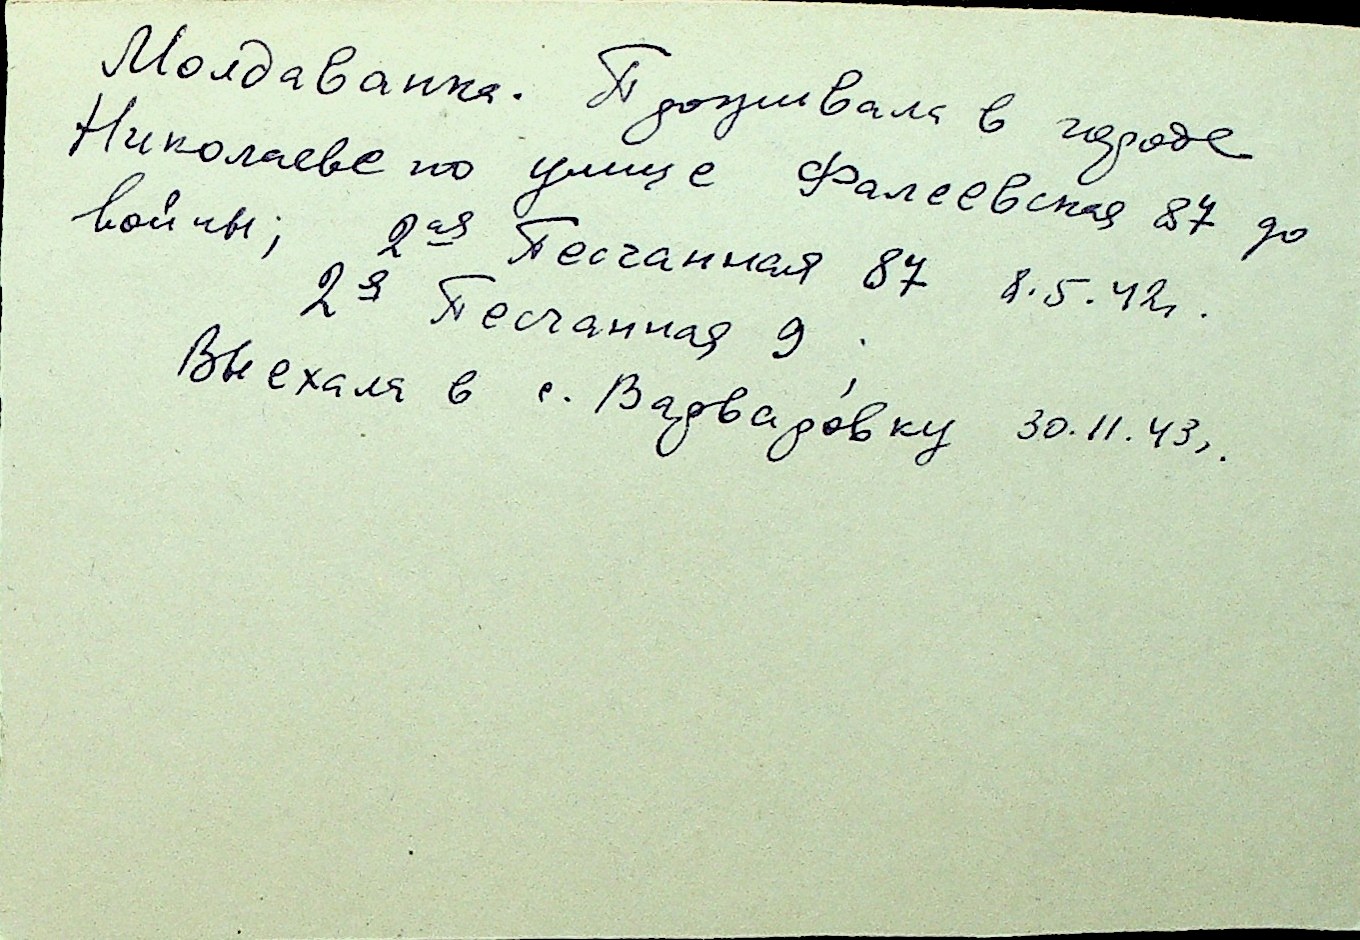 Молдаванка. Проживала в городе
Николаеве по улице Фалеевская 87 до
войны; 2ая Песчанная 87 8.5.42г.
2я Песчанная 9;
Выехала в с. 30.11.43г.